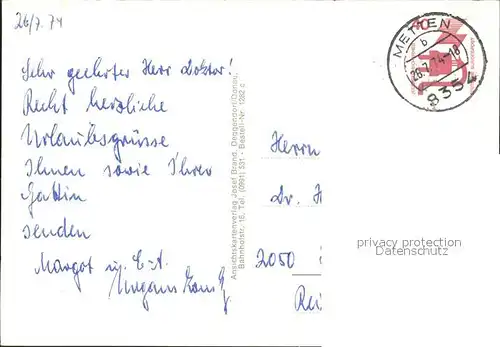 26/7. 74
Sehr geehrter Herr Doktor!
Recht herzliche
Urlaubsgrüsse
Ihnen sowie Ihrer
Gattin
senden
Margot u.
Ansichtskartenverlag Josef Brand, Deggendorf/Donau,
Bahnhofstr. 16, Tel. (0991) 531 - Bestell-Nr. 1282 c
METTEN
b
26.7.74-18
8354
Herrn
Dr. H
2050
privacy protection
Datenschutz